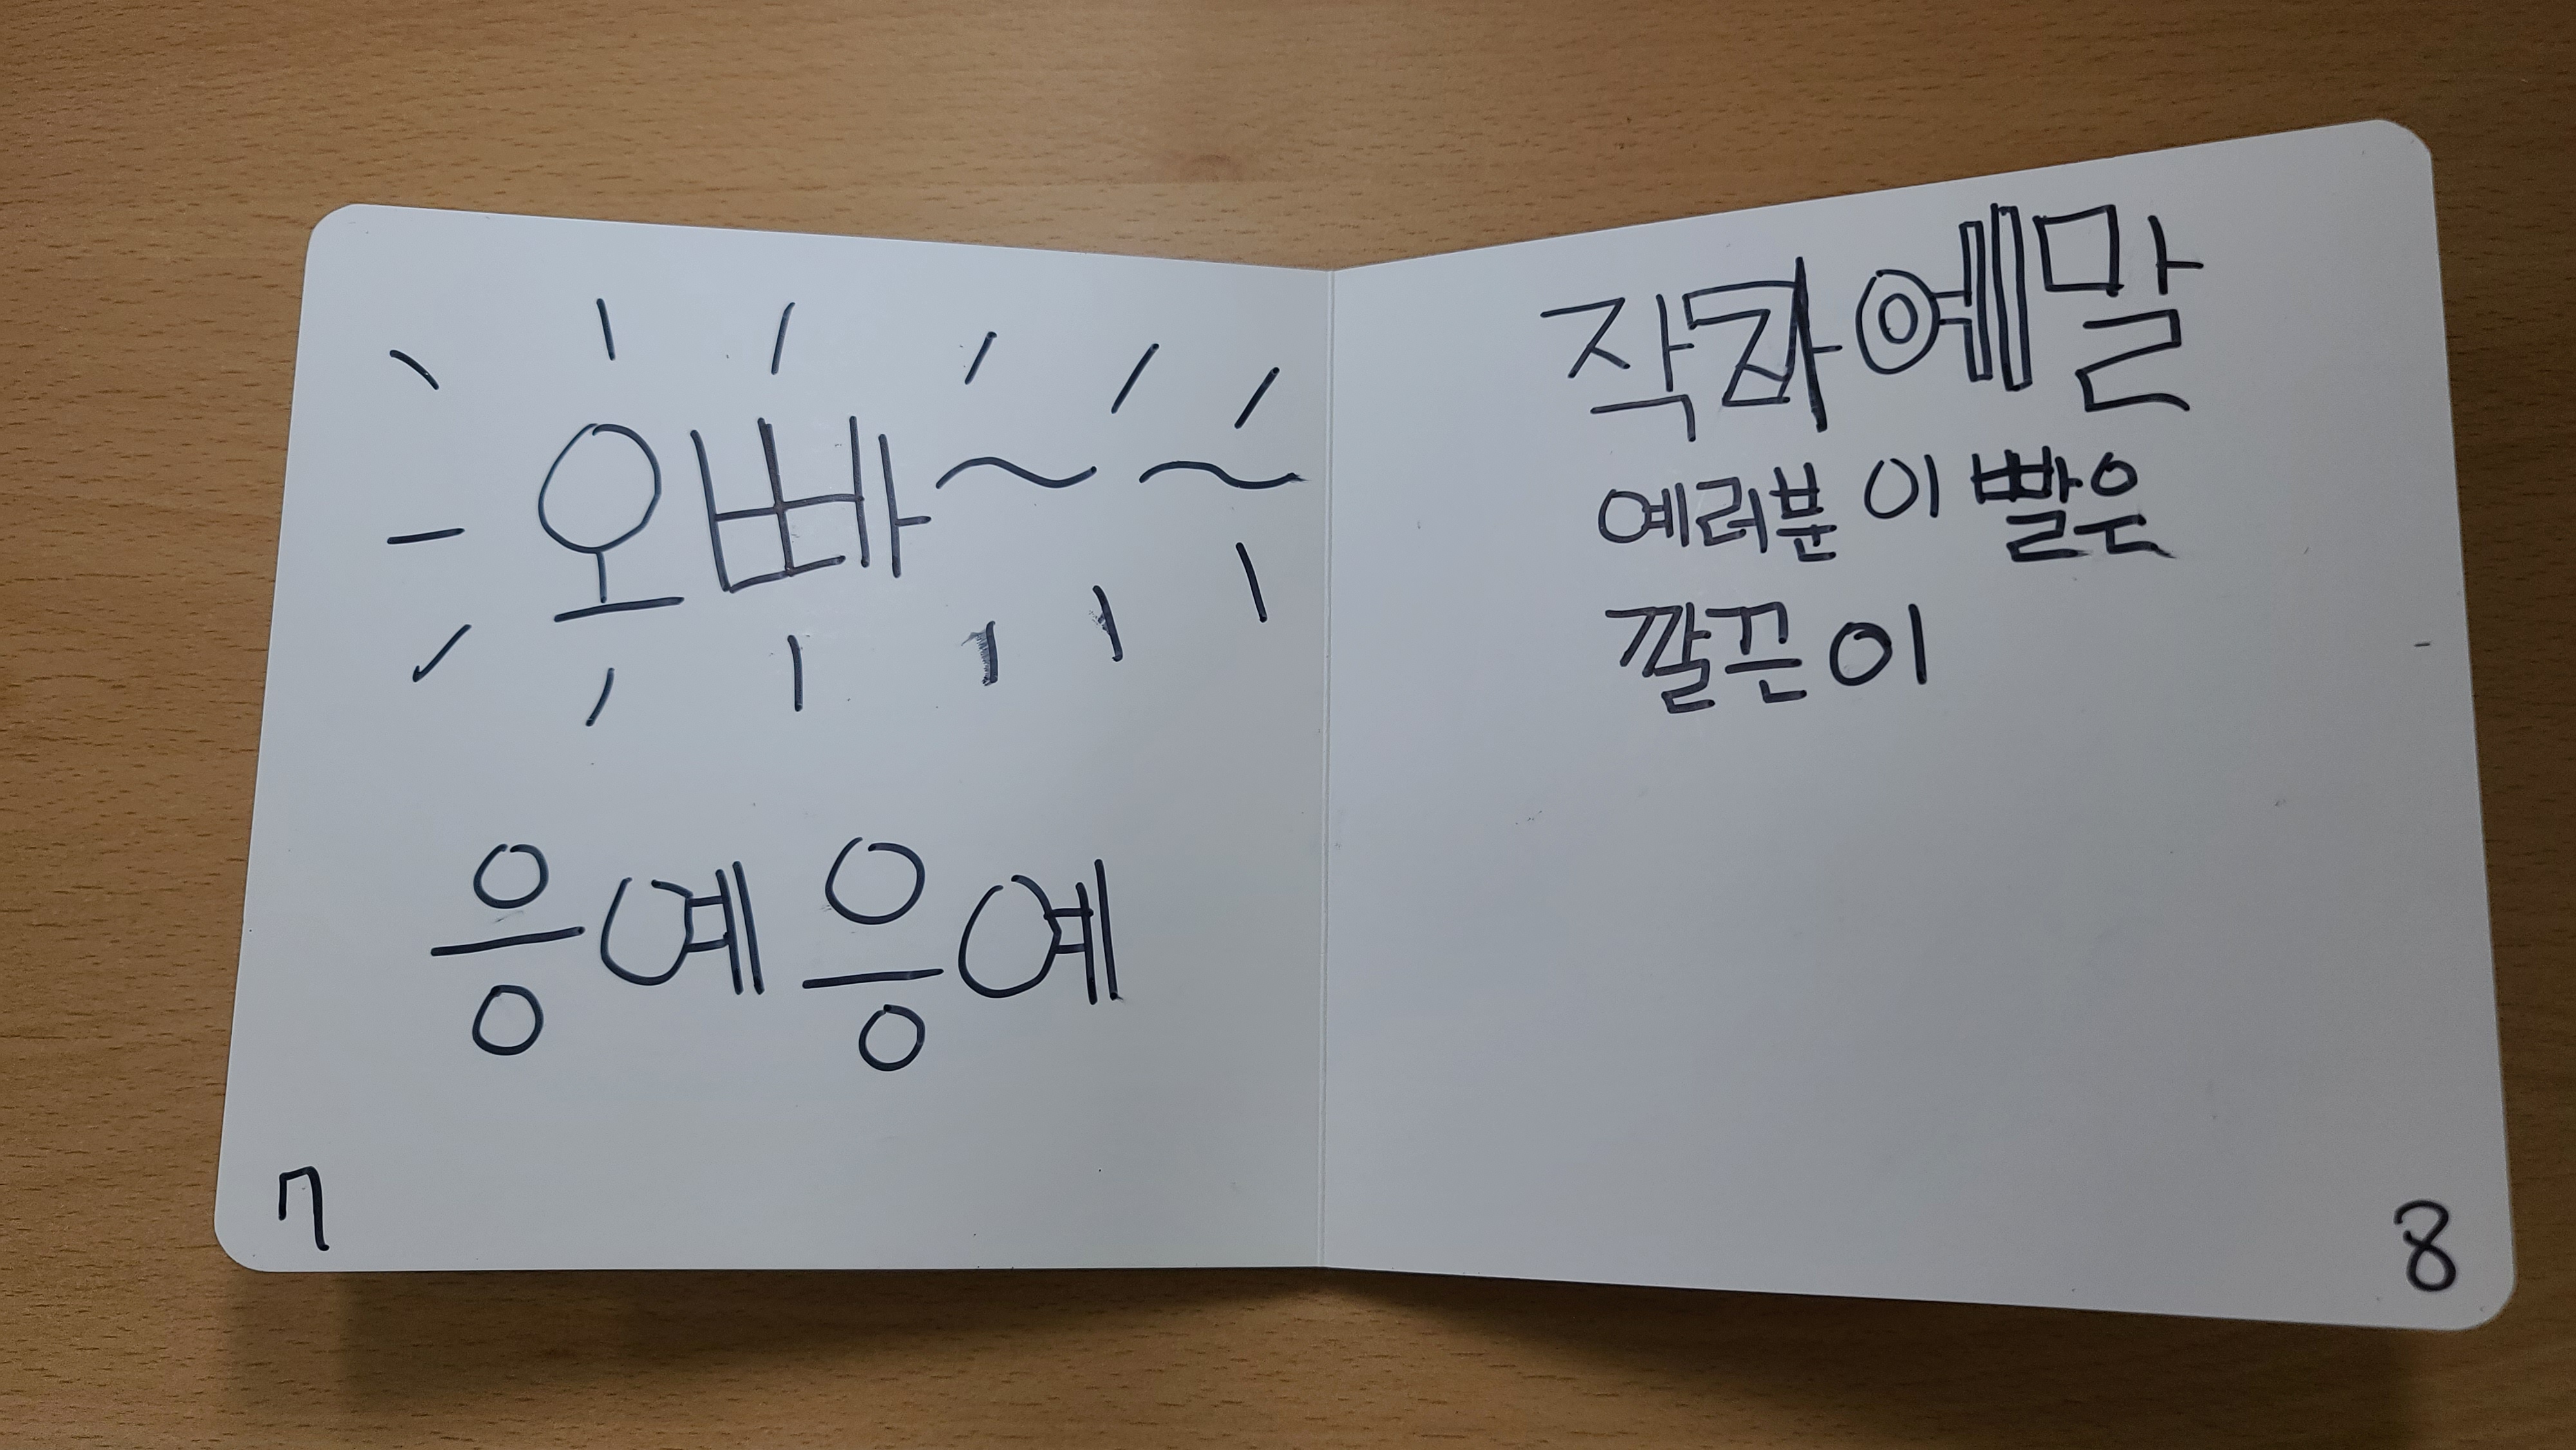 오빠~~
응예응예
7
작자예말
예러분이 빨은
깔끈이
8